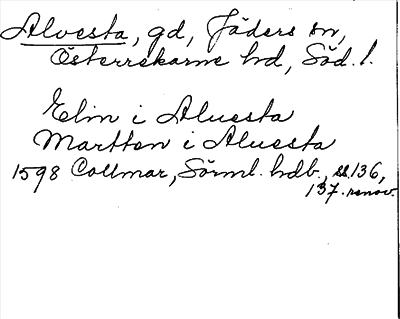 Alvesta, gd, Jäders sn,
Österrekarne hd, Söd. l.
Elin i Aluesta
Martten i Aluesta
1598 Collmar, Sörml. hdb., ss. 136,
137. renov.